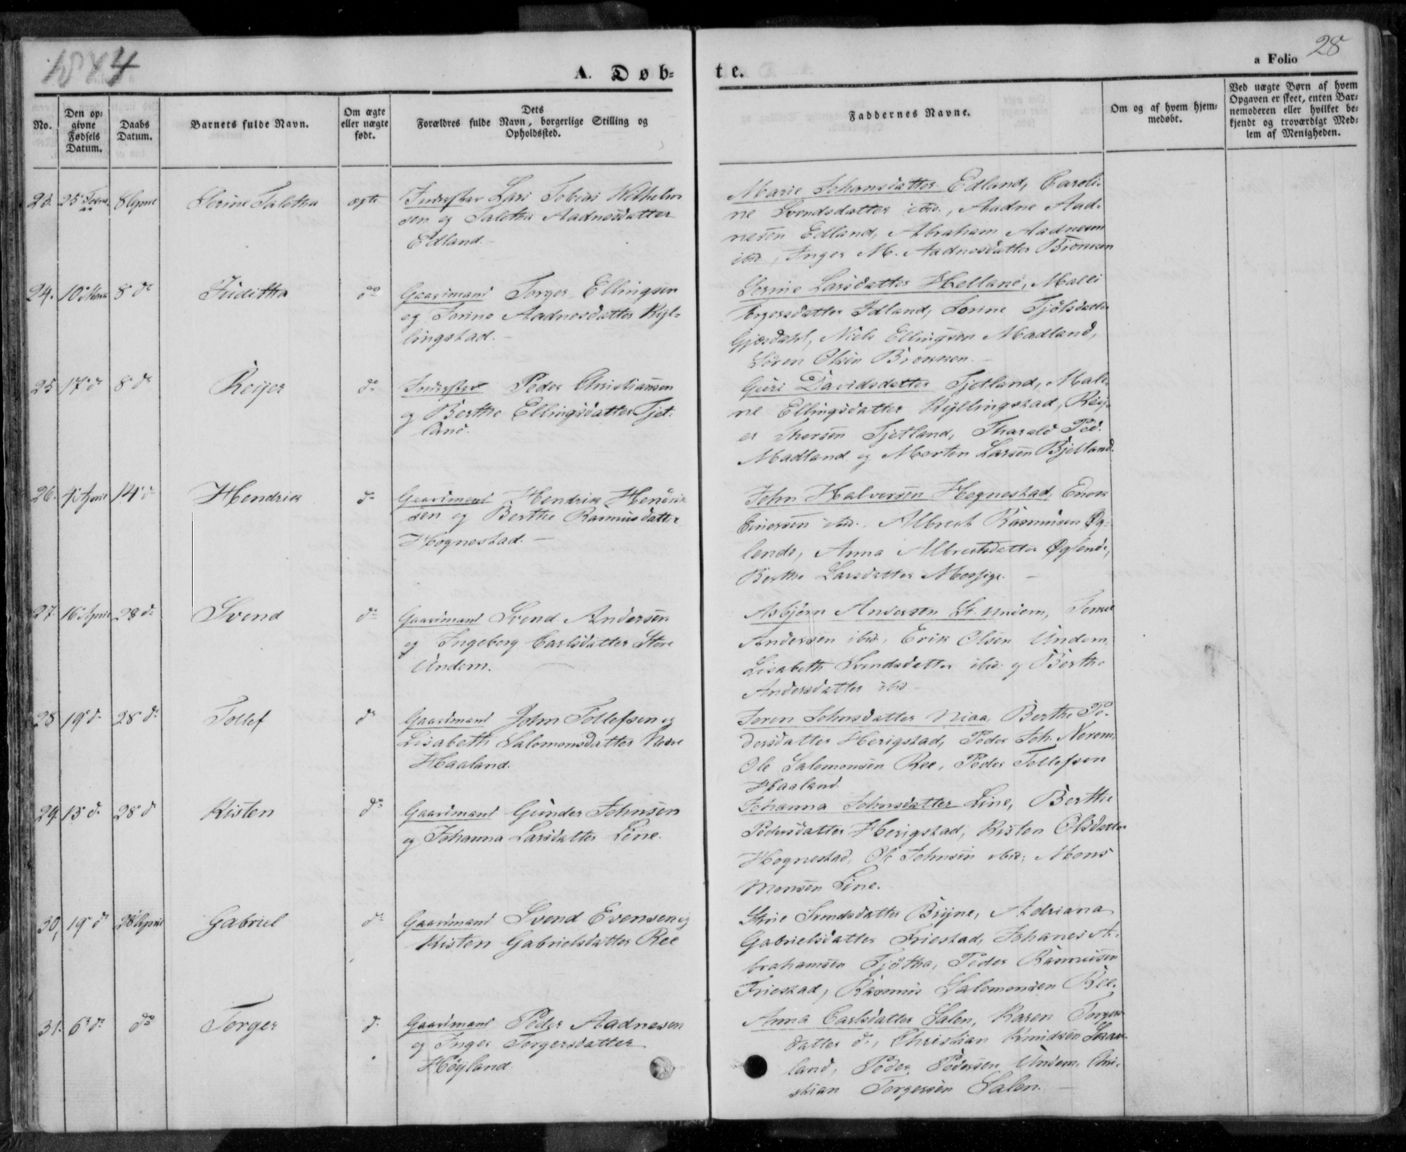 1844
28
A. Døb=
te.
a Folio
No.
Den op=
givne
Fødsels
Datum.
Daabs
Datum.
Barnets fulde Navn.
Om ægte
eller uægte
født.
Dets
Forældres fulde Navn, borgerlige Stilling og
Opholdssted.
Faddernes Navne.
Om og af hvem hjem=
medøbt.
Ved uægte Børn af hvem
Opgaven er skeet, enten Bar=
nemoderen eller hvilket be=
kjendt og troværdigt Med=
lem af Menigheden.
23. 8 April Serine Taletha ægte Inderster Lars Tobias Wilhelm
sen og Taletha Aadnesdatter
Edland
Marie Johansdatter Edland, Caroli=
ne Svendsdatter ibid., Aadne Aad=
nesen Edland, Abraham Aadnesen
ibid, Inger M. Aadnesdatter Brønnen
24. 10 8 do Juditha do Gaardmand Torger Ellingsen
og Serine Aadnesdatter Kyl=
lingstad.
Serine Larsdatter Helland, Malli
Edland, Serine
Niels Ellingsen Madland,
Søren Olsen Brønnen.
25 17 do 8 do Reijer do Inderster Peder Christiansen
og Berthe Ellingsdatter Tjet=
land.
Guri Davidsdatter Tjetland, Male=
ne Ellingsdatter Kyllingstad, Reij=
er Iversen Tjetland, Tharald Ped.
Madland og Morten Larsen Bjelland.
26. 4 April 14 do Hendrik do Gaardmand Hendrik Hendrik
sen og Berthe Rasmusdatter
Hognestad.
John Halvorsen Hognestad, Enok
Einersen ibid. Albrect Rasmusen Øg=
lend, Anna Albrectsdatter Øglend,
Berthe Larsdatter Mossige.
27 16 April 28 do Svend do Gaardmand Svend Andersen
og Ingeborg Carlsdatter Store
Undem.
Asbjørn Andersen St. Undem,
Andersen ibid, Erik Olsen Undem
Lisabeth Svendsdatter ibid og Berthe
Andersdatter ibid
28 19 do 28 do Tollef do Gaardmand John Tollefsen og
Lisabeth Salomonsdatter Nedre
Haaland.
Johnsdatter Niaa, Berthe Pe=
dersdatter Herigstad, Peder Joh. Norem
Ole Salomonsen Ree, Peder Tollefsen
Haaland
29 15 do 28 do Kisten do Gaardmand Gunder Johnsen
og Johanna Larsdatter Line.
Johanna Johnsdatter Line, Berthe
Pedersdatter Herigstad, Kisten Olsdatter
Hognestad, Ole Johnsen ibid, Mons
Monsen Line.
30, 19 do 28 April Gabriel do Gaardmand Svend Evensen og
Kisten Gabrielsdatter Ree
Svendsdatter Bryne, Adriana
Gabrielsdatter Friestad, Johanes A=
brahamsen Tjøtha, Peder Rasmusen
Friestad, Rasmus Salomonsen Ree.
31. 6 do do Torger do Gaardmand Peder Aadnesen
og Inger Torgersdatter
Høyland
Anna Carlsdatter Salen, Karen Torgers
datter do, Christian Knudsen
land, Peder Pedersen Undem, Chri=
stian Torgersen Salen.